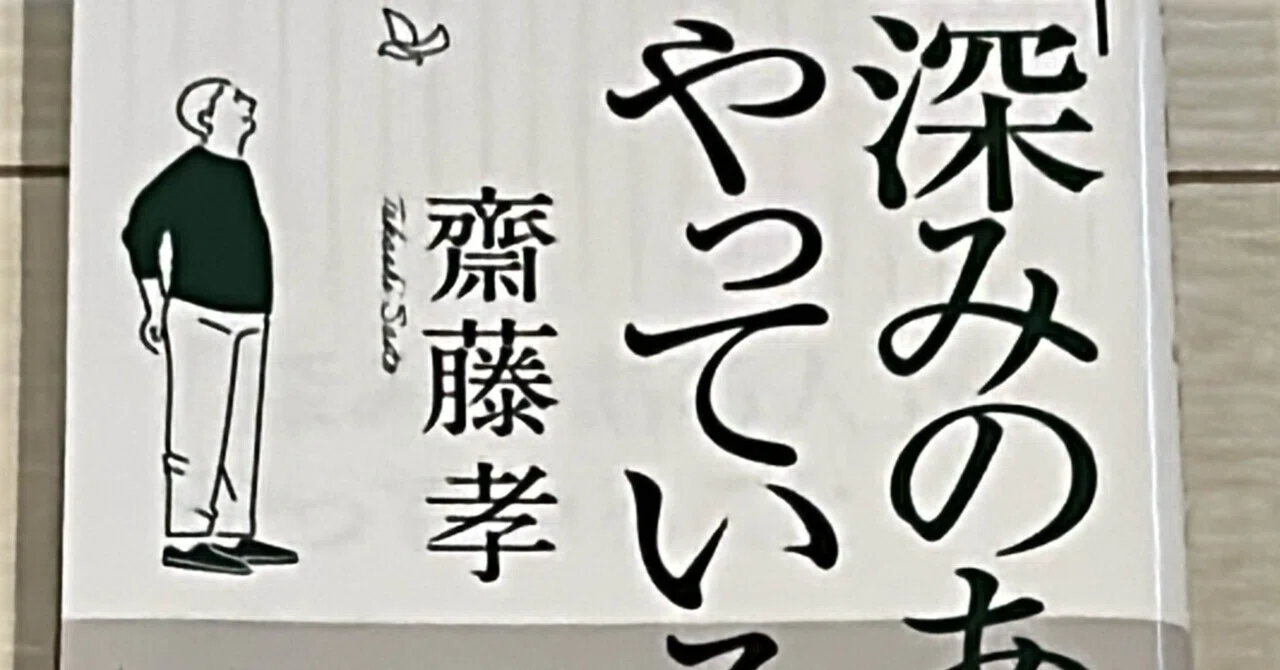 「深みのあ
やっている
齋藤 孝
Takashi Saito